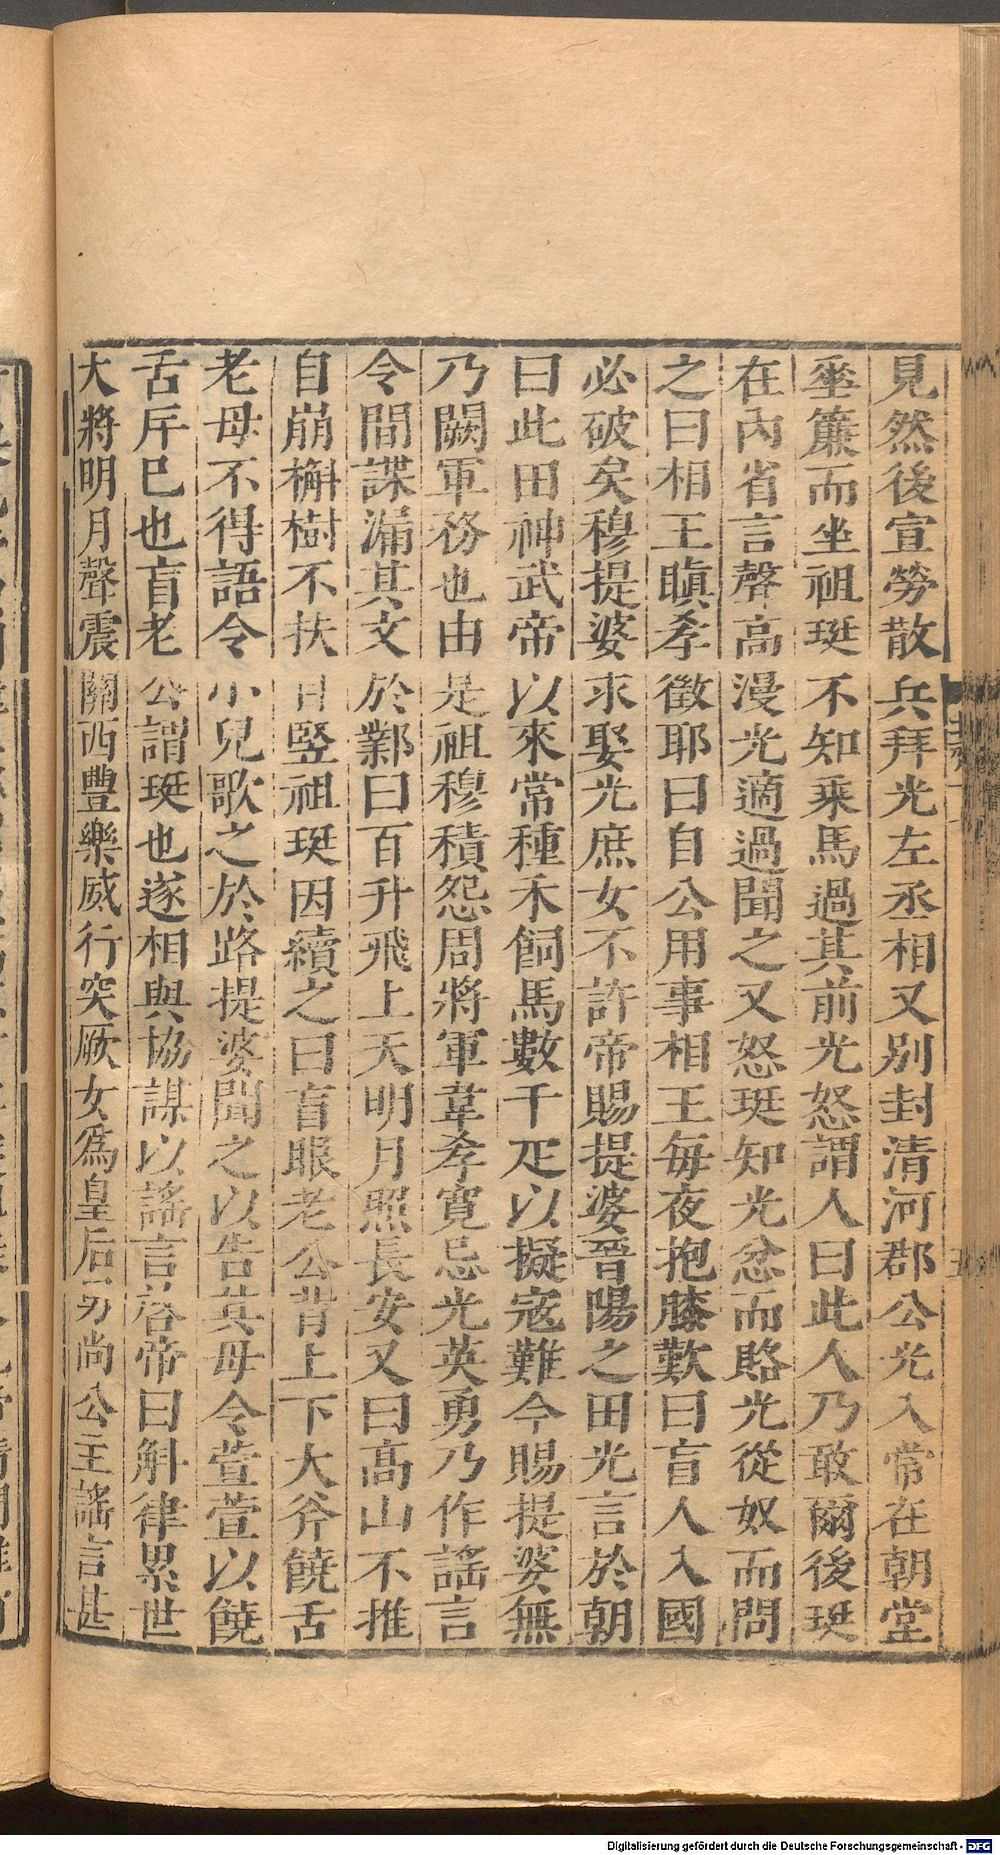 見然後宣勞散兵拜光左丞相又別封清河郡公光入常在朝堂
垂簾而坐祖珽不知乘馬過其前光怒謂人曰此人乃敢爾後珽
在內省言聲高漫光適過聞之又怒珽知光忿而賂光從奴而問
之曰相王瞋孝徵耶曰自公用事相王每夜抱膝歎曰盲人入國
必破矣穆提婆求娶光庶女不許帝賜提婆晉陽之田光言於朝
曰此田神武帝以來常種禾飼馬數千疋以擬寇難今賜提婆無
乃闕軍務也由是祖穆積怨周將軍韋孝寬忌光英勇乃作謠言
令間諜漏其文於鄴曰百升飛上天明月照長安又曰高山不推
自崩槲樹不扶自竪祖珽因續之曰盲眼老公背上下大斧饒舌
老母不得語令小兒歌之於路提婆聞之以告其母令萱萱以饒
舌斥巳也盲老公謂珽也遂相與協謀以謠言啓帝曰斛律累世
大將明月聲震關西豐樂威行突厥女爲皇后男尚公主謠言甚
Digitalisierung gefördert durch die Deutsche Forschungsgemeinschaft - DFG